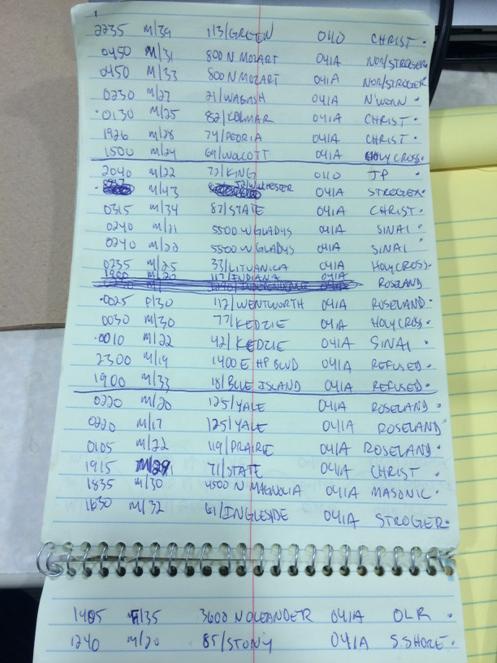 2235 M/39 113/GREEN 0110 CHRIST.
0450 M/31 800 N MOZART 041A NOR/STROGER
0450 M/33 800 N MOZART 041A NOR/STROGER
0230 M/27 21/WABASH 041A N'WRN.
0130 M/25 82/KOLMAR 041A CHRIST.
1926 M/28 74/PEORIA 041A CHRIST.
1500 M/24 64/WOLCOTT 041A HOLY CROSS.
2040 M/22 72/KING 0110 JP
M/43 041A STROGER.
0315 M/34 87/STATE 041A CHRIST.
0240 M/21 5500 W GLADYS 041A SINAI.
0240 M/22 5500 W GLADYS 041A SINAI.
0235 M/25 33/LITUANICA 041A HOLY CROSS.
1900 M/22 117/INDIANA 041A ROSELAND
0025 F/30 112/WENTWORTH 041A ROSELAND.
0030 M/30 77/KEDZIE 041A HOLY CROS.
0010 M/22 42/KEDZIE 041A SINAI.
2300 M/19 1400 E HP BLVD 041A REFUSED.
1900 M/33 18/BLUE ISLAND 041A REFUSED.
0220 M/20 125/YALE 041A ROSELAND.
0220 M/17 125/YALE 041A ROSELAND
0105 M/22 119/PRAIRIE 041A ROSELAND.
1915 M/29 71/STATE 041A CHRIST.
1835 M/30 4500 N MAGNOLIA 041A MASONIC.
1630 M/32 61/INGLESIDE 041A STROGER.
1405 F/35 3600 N OLEANDER 041A OLR.
1240 M/20 85/STONY 041A S.SHORE.